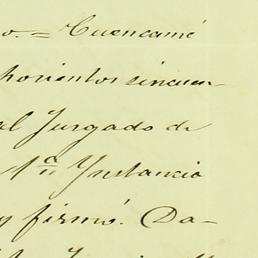 o. = Cuencamé
horientos cincuen-
al Jurgado de
1ª Ynstancia
y firmó. Da-